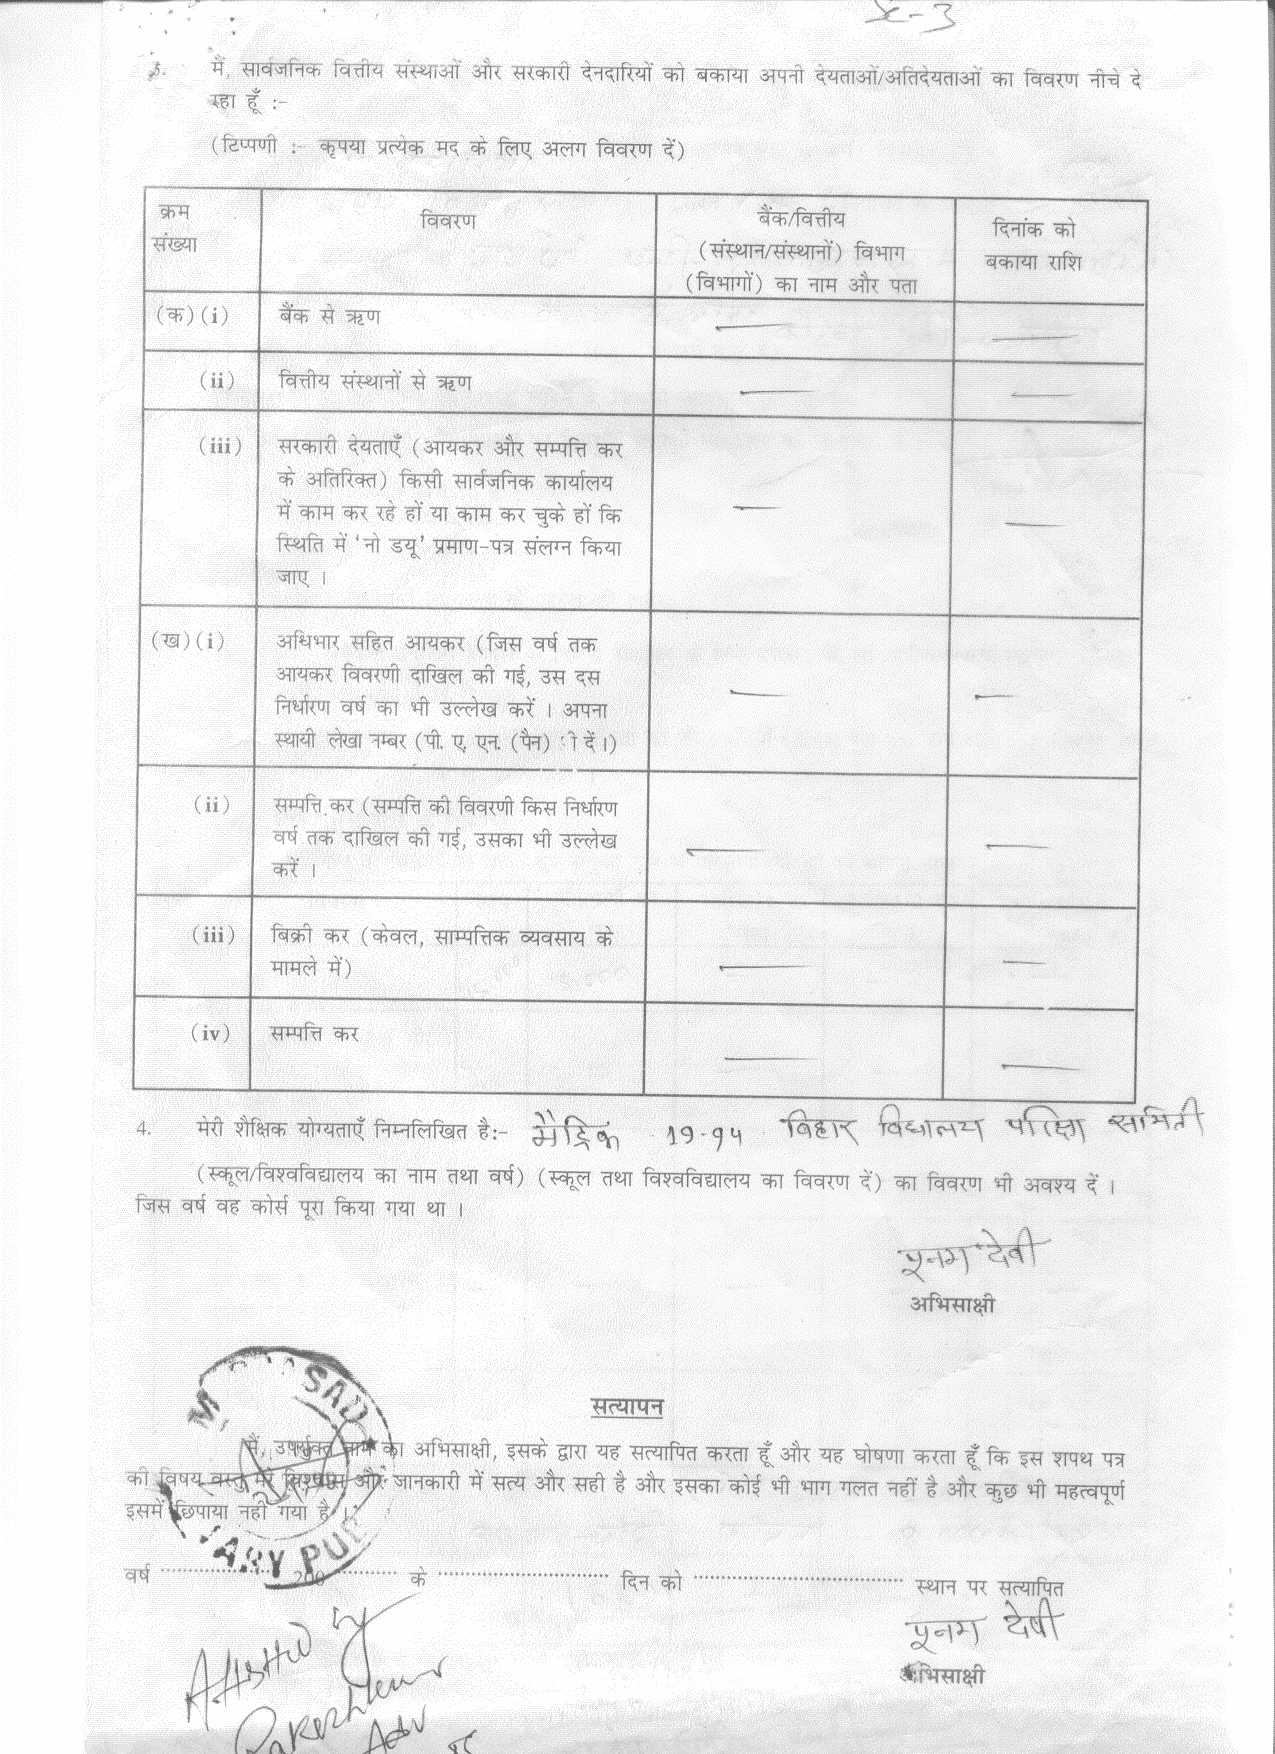 x-3
3. मैं, सार्वजनिक वित्तीय संस्थाओं और सरकारी देनदारियों को बकाया अपनी देयताओं/अतिदेयताओं का विवरण नीचे दे
रहा हूँ :-
(टिप्पणी :- कृपया प्रत्येक मद के लिए अलग विवरण दें)
क्रम
संख्या
विवरण
बैंक/वित्तीय
(संस्थान/संस्थानों) विभाग
(विभागों) का नाम और पता
दिनांक को
बकाया राशि
(क) (i) बैंक से ऋण — —
(ii) वित्तीय संस्थानों से ऋण — —
(iii) सरकारी देयताएँ (आयकर और सम्पत्ति कर
के अतिरिक्त) किसी सार्वजनिक कार्यालय
में काम कर रहे हों या काम कर चुके हों कि
स्थिति में 'नो डयू' प्रमाण-पत्र संलग्न किया
जाए ।
— —
(ख) (i) अधिभार सहित आयकर (जिस वर्ष तक
आयकर विवरणी दाखिल की गई, उस दस
निर्धारण वर्ष का भी उल्लेख करें । अपना
स्थायी लेखा नम्बर (पी. ए. एन. (पैन) दें।)
— —
(ii) सम्पत्ति कर (सम्पत्ति की विवरणी किस निर्धारण
वर्ष तक दाखिल की गई, उसका भी उल्लेख
करें ।
— —
(iii) बिक्री कर (केवल, साम्पत्तिक व्यवसाय के
मामले में)
— —
(iv) सम्पत्ति कर — —
4. मेरी शैक्षिक योग्यताएँ निम्नलिखित है:- मैट्रिक 19-94 बिहार विद्यालय परिक्षा समिती
(स्कूल/विश्वविद्यालय का नाम तथा वर्ष) (स्कूल तथा विश्वविद्यालय का विवरण दें) का विवरण भी अवश्य दें ।
जिस वर्ष वह कोर्स पूरा किया गया था ।
पूनम देवी
अभिसाक्षी
सत्यापन
मैं, उपर्युक्त नाम का अभिसाक्षी, इसके द्वारा यह सत्यापित करता हूँ और यह घोषणा करता हूँ कि इस शपथ पत्र
की विषय वस्तु मेरे विश्वास और जानकारी में सत्य और सही है और इसका कोई भी भाग गलत नहीं है और कुछ भी महत्वपूर्ण
इसमें छिपाया नहीं गया है ।
वर्ष ............ 200 ............ के ............ दिन को ............ स्थान पर सत्यापित
पूनम देवी
अभिसाक्षी
Attested by
Adv